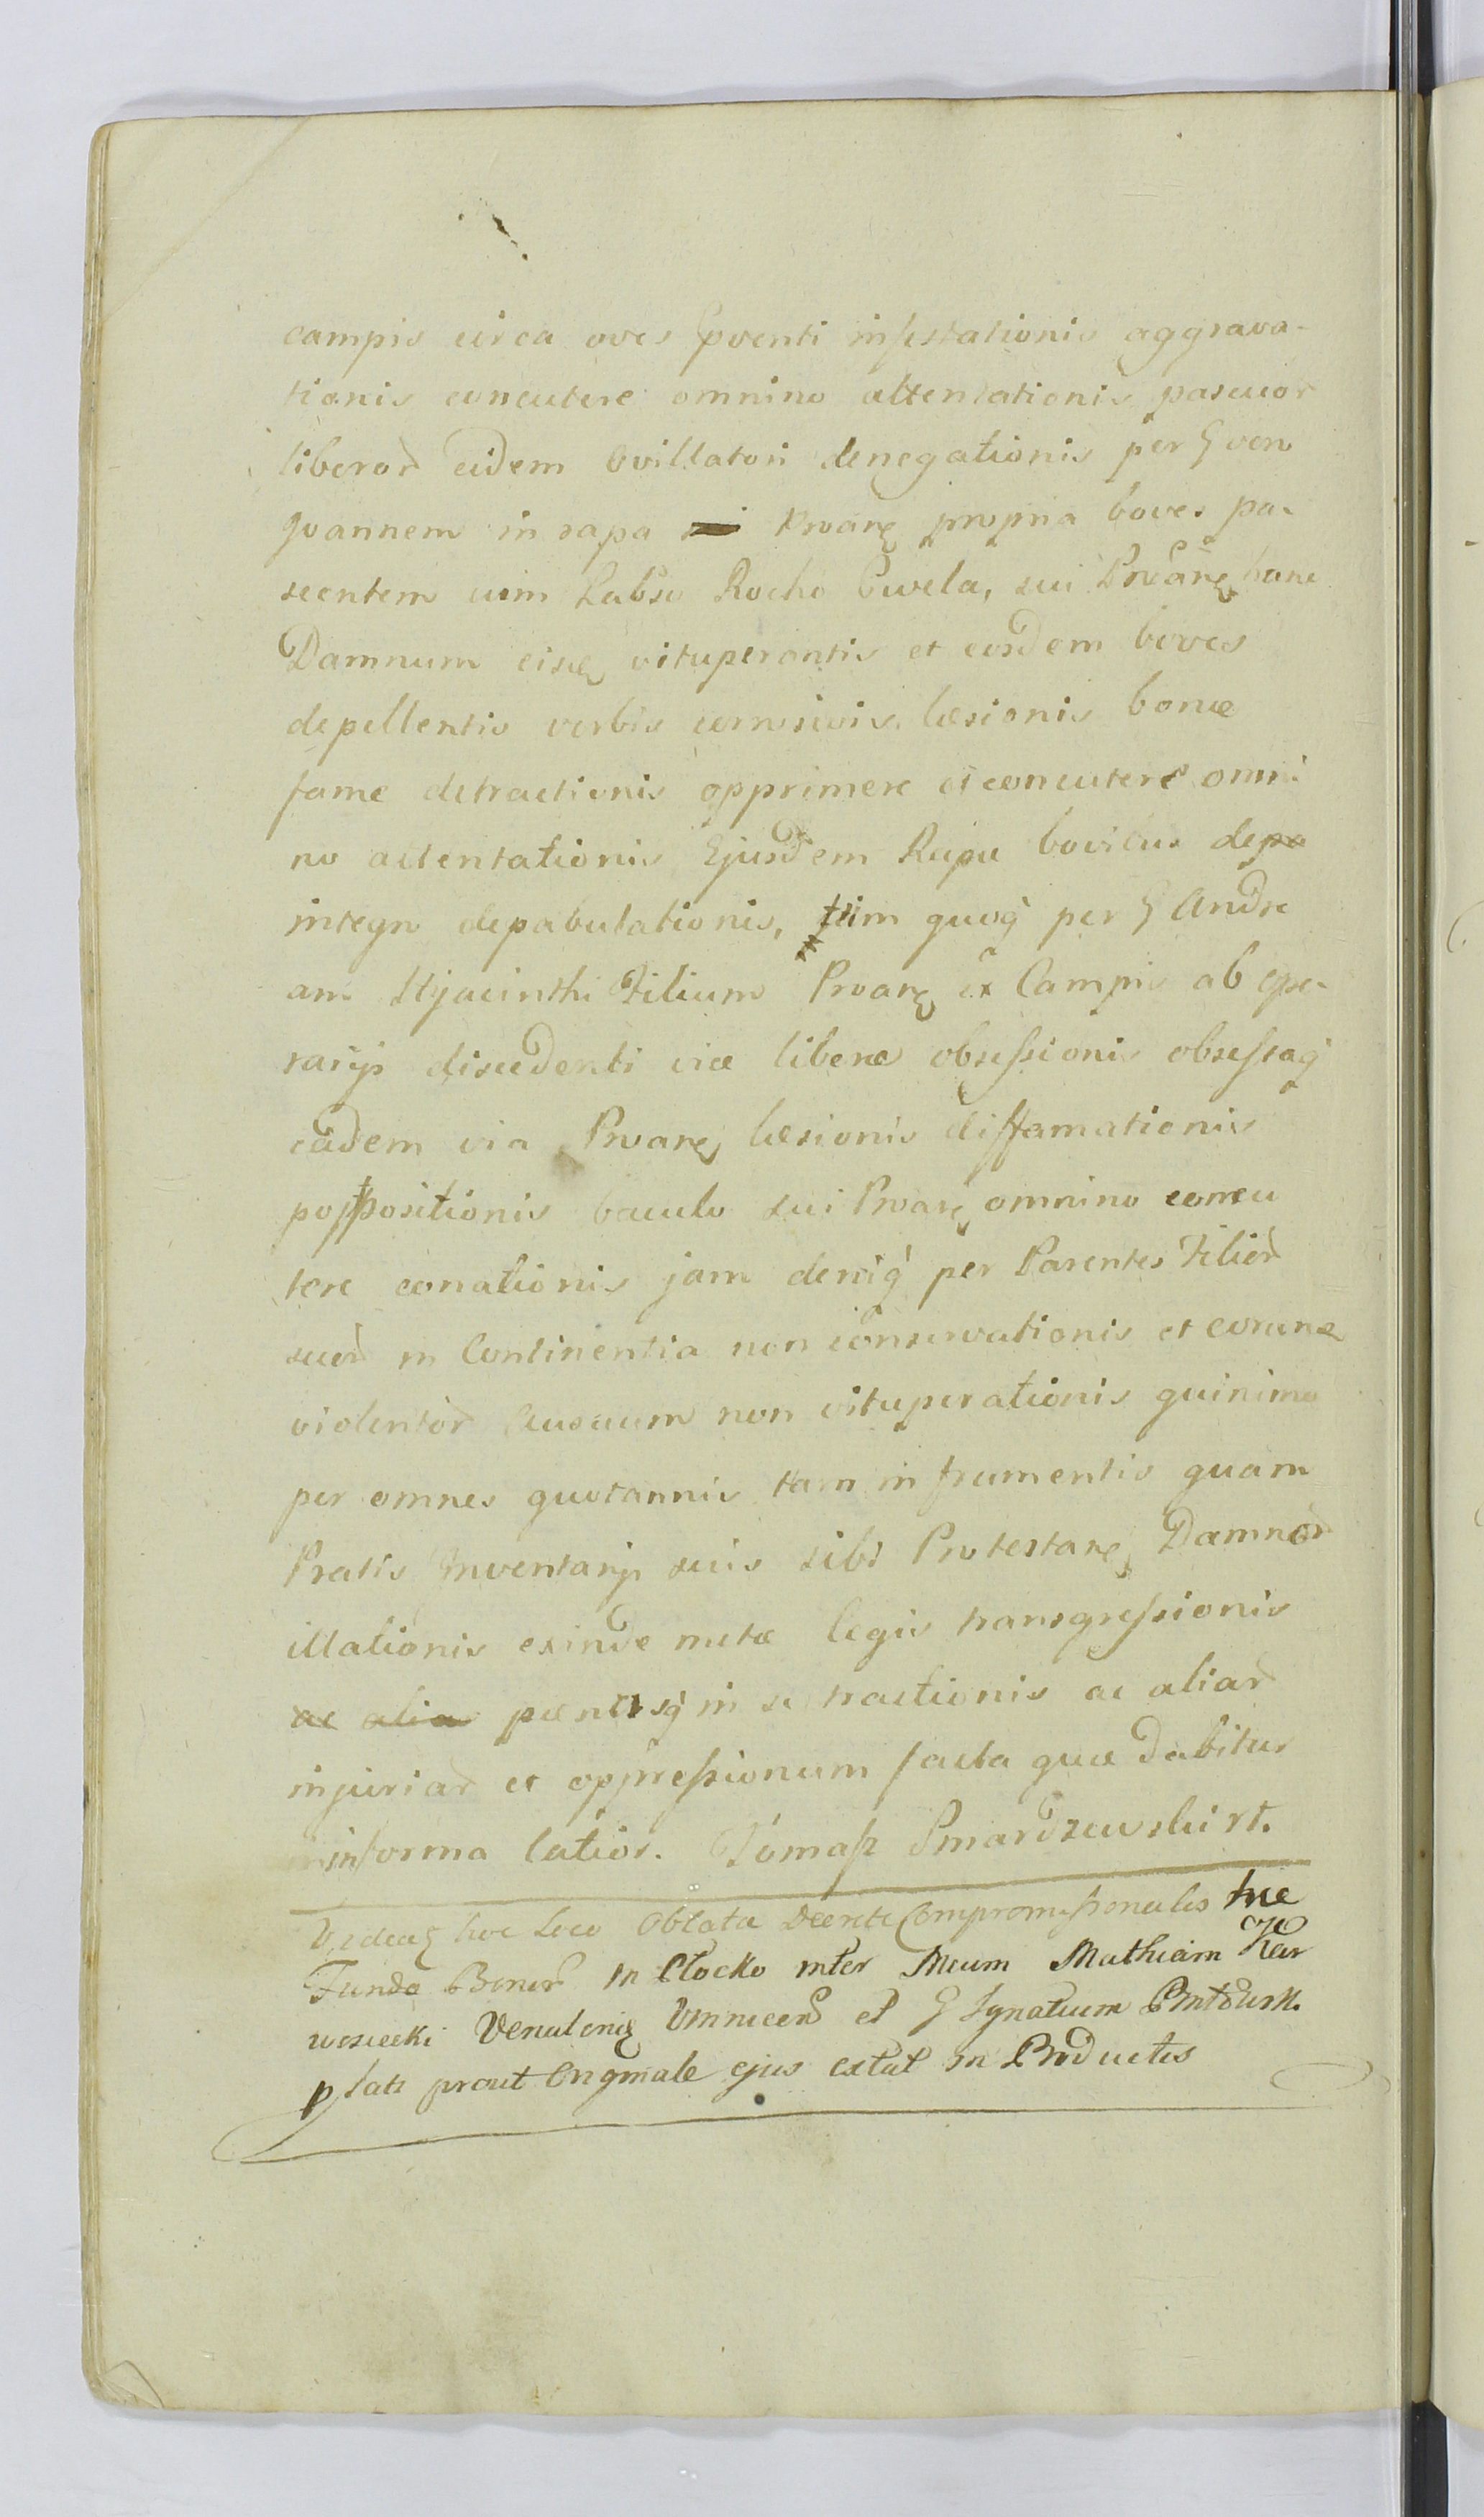 campis circa oves  infestationis aggrava-
tionis concutere omnino attentationis pascuor
liberor eidem Ovillatori denegationis per G ven
Joannem in rapa Proarę propria boves pa-
scentem cum Labso Rocho Cwela, sui Proarę hanc
Damnum eisq vituperantis et eosdem boves
depellentis verbis corrosivis læsionis bonæ
fame detractionis opprimere et concutere omni
no attentationis Ejusdem Rapæ bovibus
integro depabulationis, tum quoq per G Andre
am Hyacinthi Filium Proarę ex Campis ab ope-
rarijs discedenti viæ liberæ obsessionis obsessaq
eadem via Proarę læsionis diffamationis
postpositionis baculo sui Proarę omnino concu
tere conationis jam deniq per Parentes Filior
suor in Continentia non conservationis et eorum
violentor Ausuum non vituperationis quinimo
per omnes quotannis tam in frumentis quam
Pratis Inventarijs suis sibi Protestarę Damnor
illationis exinde metæ legis transgressionis
ac alia pœnisq in se tractionis ac aliar
injuriar et oppressionum facta quæ dabitur
in forma latior. Tomasz Smardzewski rt.
Videaᵗ hoc Loco Oblata Decreti Compromissionales hic
Fundo Bonor in Clocko inter Mcum Mathiam Kar
wosiecki Venatorię Vnnicen et G Ignatium
plati prout Originale ejus extat in Productis